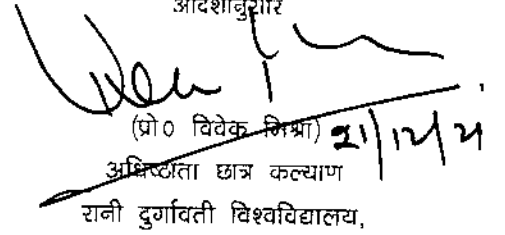 आदेशानुसार
(प्रो० विवेक मिश्रा) 21/12/21
अधिष्ठाता छात्र कल्याण
रानी दुर्गावती विश्वविद्यालय,